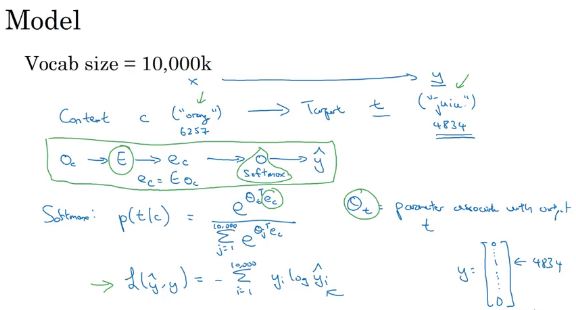 Model
Vocab size = 10,000k
x → y
Context c ("orange") → Target t ("juice")
6257 4834
O_c → E → e_c → O → ŷ
e_c = E O_c softmax
Softmax: p(t|c) = e^{θ_t^T e_c} / Σ_{j=1}^{10,000} e^{θ_j^T e_c} θ_t = parameter associated with output t
→ L(ŷ,y) = - Σ_{i=1}^{10,000} y_i log ŷ_i y = [0 ⋮ 1 ⋮ 0] ← 4834